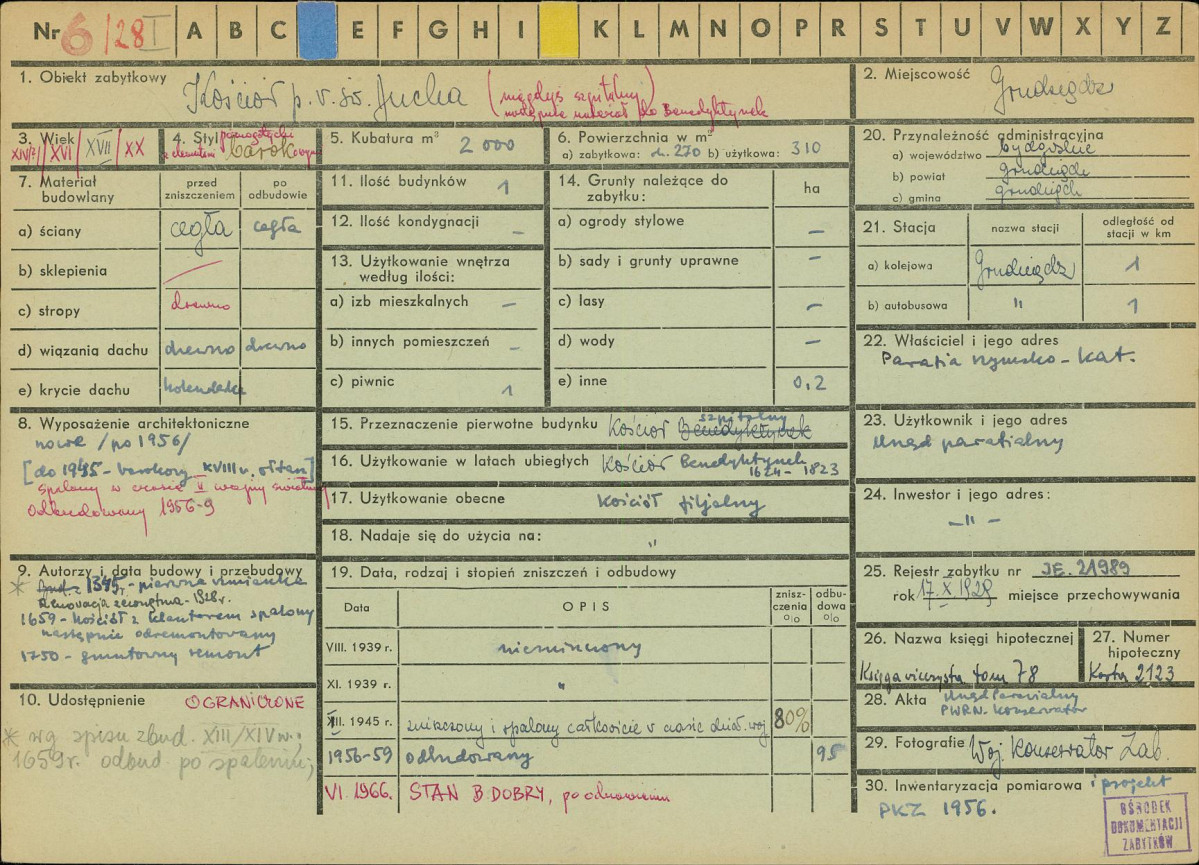 Nr 6/28 I A B C E F G H I K L M N O P R S T U V W X Y Z
1. Obiekt zabytkowy Kościół p. w. św. Ducha (niegdyś szpitalny
następnie należał do Benedyktynek
2. Miejscowość Grudziądz
3. Wiek XVI XVII XX
4. Styl późnogotycki
z elementami barokowymi
5. Kubatura m³ 2 000
6. Powierzchnia w m²
a) zabytkowa: 270 b) użytkowa: 310
7. Materiał budowlany
przed zniszczeniem
po odbudowie
a) ściany cegła cegła
b) sklepienia
c) stropy drewno
d) wiązania dachu drewno drewno
e) krycie dachu holenderka
8. Wyposażenie architektoniczne
nowe /po 1956/
[do 1945 - barokowy XVIII w. ołtarz]
spalony w czasie II wojny światowej
Odbudowany 1956-9
9. Autorzy i data budowy i przebudowy
1345r. - pierwsza wzmianka
Renowacja zewnętrzna - 1928r.
1659 - Kościół z klasztorem spalony
następnie odremontowany
1750 - gruntowny remont
10. Udostępnienie OGRANICZONE
* wg spisu zbud. XIII/XIV w.
1659r. odbud. po spaleniu
11. Ilość budynków 1
12. Ilość kondygnacji –
13. Użytkowanie wnętrza
według ilości:
a) izb mieszkalnych –
b) innych pomieszczeń –
c) piwnic 1
14. Grunty należące do
zabytku: ha
a) ogrody stylowe –
b) sady i grunty uprawne –
c) lasy –
d) wody –
e) inne 0,2
15. Przeznaczenie pierwotne budynku Kościół szpitalny Benedyktynek
16. Użytkowanie w latach ubiegłych Kościół Benedyktynek
1624 - 1823
17. Użytkowanie obecne Kościół filialny
18. Nadaje się do użycia na: "
19. Data, rodzaj i stopień zniszczeń i odbudowy
Data OPIS znisz-
czenia % odbu-
dowa %
VIII. 1939 r. niezniszczony
XI. 1939 r. "
XII. 1945 r. zniszczony i spalony całkowicie w czasie dział. woj 80%
1956-59 odbudowany 95
VI. 1966. STAN B. DOBRY, po odnowieniu
20. Przynależność administracyjna
a) województwo bydgoskie
b) powiat grudziądz
c) gmina grudziądz
21. Stacja nazwa stacji odległość od
stacji w km
a) kolejowa Grudziądz 1
b) autobusowa " 1
22. Właściciel i jego adres
Parafia rzymsko - kat.
23. Użytkownik i jego adres
Urząd parafialny
24. Inwestor i jego adres:
– " –
25. Rejestr zabytku nr JE. 21989
rok 17. X 1929 miejsce przechowywania
26. Nazwa księgi hipotecznej
Księga wieczysta tom 78
27. Numer
hipoteczny
Karta 2123
28. Akta Urząd Parafialny
PWRN. Konserwator
29. Fotografie Woj. Konserwator Zab.
30. Inwentaryzacja pomiarowa i projekt
PKZ 1956.
OŚRODEK
DOKUMENTACJI
ZABYTKÓW